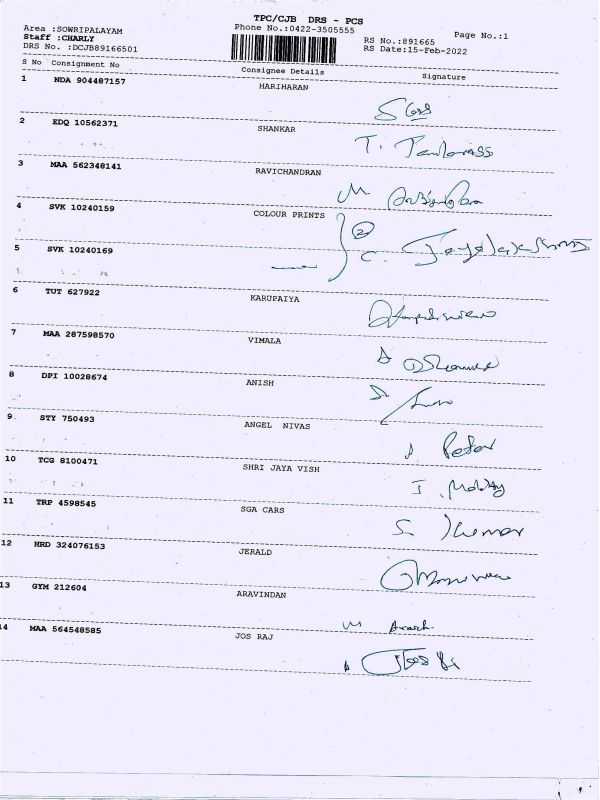 TPC/CJB DRS - PCS
Area :SOWRIPALAYAM Phone No.:0422-3505555 Page No.:1
Staff :CHARLY RS No.:891665
DRS No. :DCJB89166501 RS Date:15-Feb-2022
S No Consignment No Consignee Details Signature
1 NDA 904487157 HARIHARAN
2 EDQ 10562371 SHANKAR
T.
3 MAA 562348141 RAVICHANDRAN
M
4 SVK 10240159 COLOUR PRINTS
2
5 SVK 10240169
C.
6 TUT 627922 KARUPAIYA
7 MAA 287598570 VIMALA
8 DPI 10028674 ANISH
9 STY 750493 ANGEL NIVAS
Peter
10 TCG 8100471 SHRI JAYA VISH
I.
11 TRP 4598545 SGA CARS
S. Kumar
12 HRD 324076153 JERALD
13 GYM 212604 ARAVINDAN
M
14 MAA 564548585 JOS RAJ